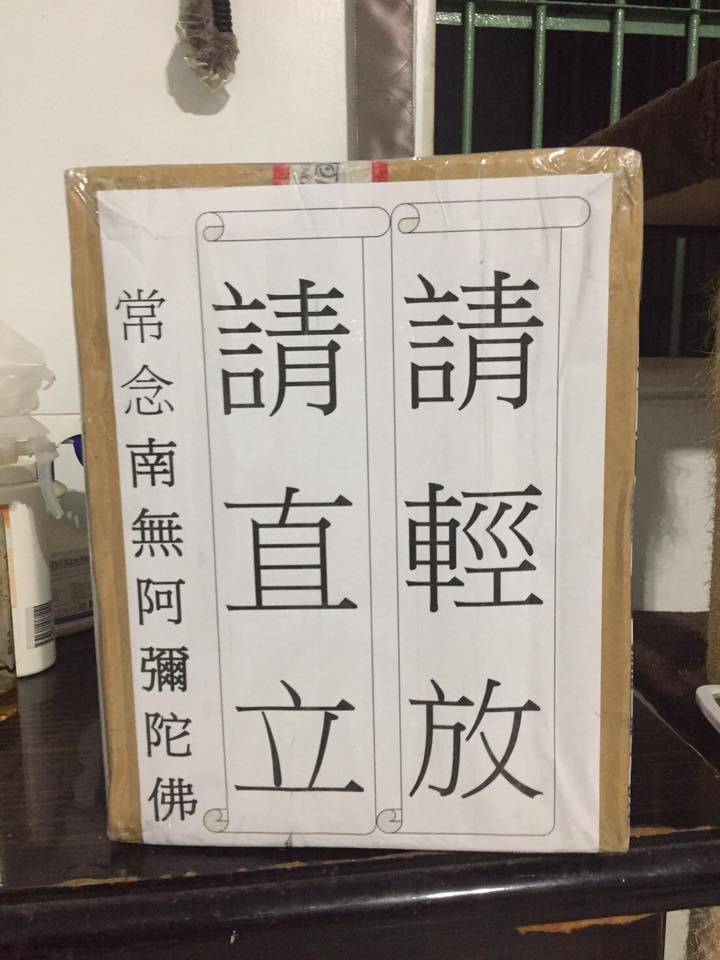 請輕放
請直立
常念南無阿彌陀佛